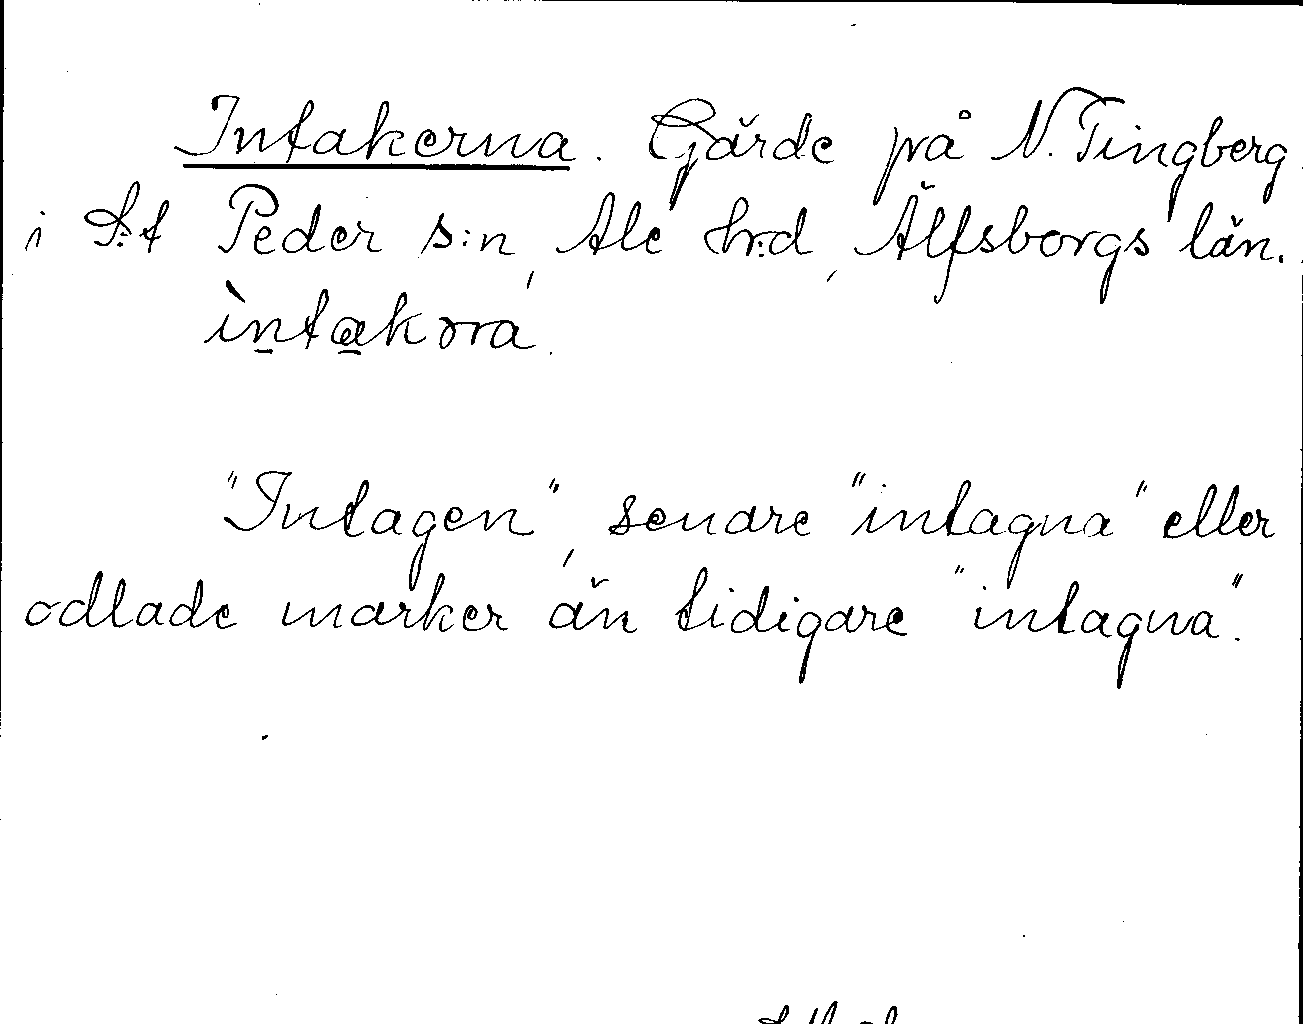 Intakerna. Gärde på N. Tingberg
i S:t Peder s:n, Ale hr:d, Älfsborgs län.
ìntakɔra.
"Intagen", senare "intagna" eller
odlade marker än tidigare "intagna".